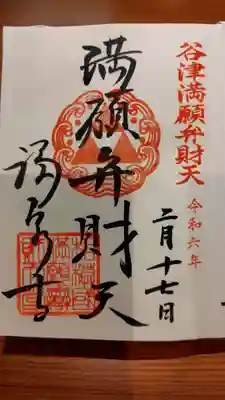 谷津満願弁財天
令和六年
二月十七日
満願弁財天